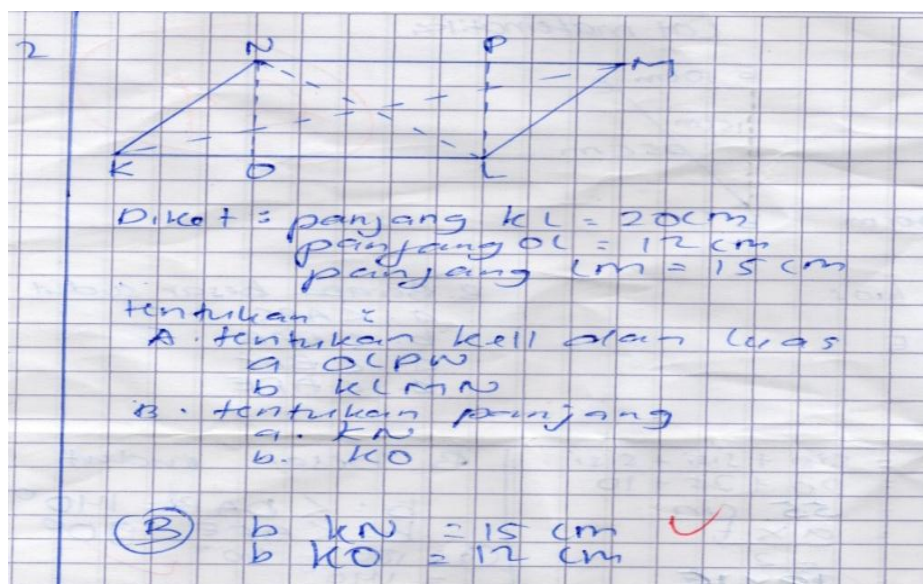 2
N P M
K O L
Diket = panjang KL = 20 cm
panjang OL = 12 cm
panjang LM = 15 cm
tentukan :
A. tentukan kell dan luas
a OLPN
b KLMN
B. tentukan panjang
a. KN
b. KO
B b KN = 15 cm
b KO = 12 cm